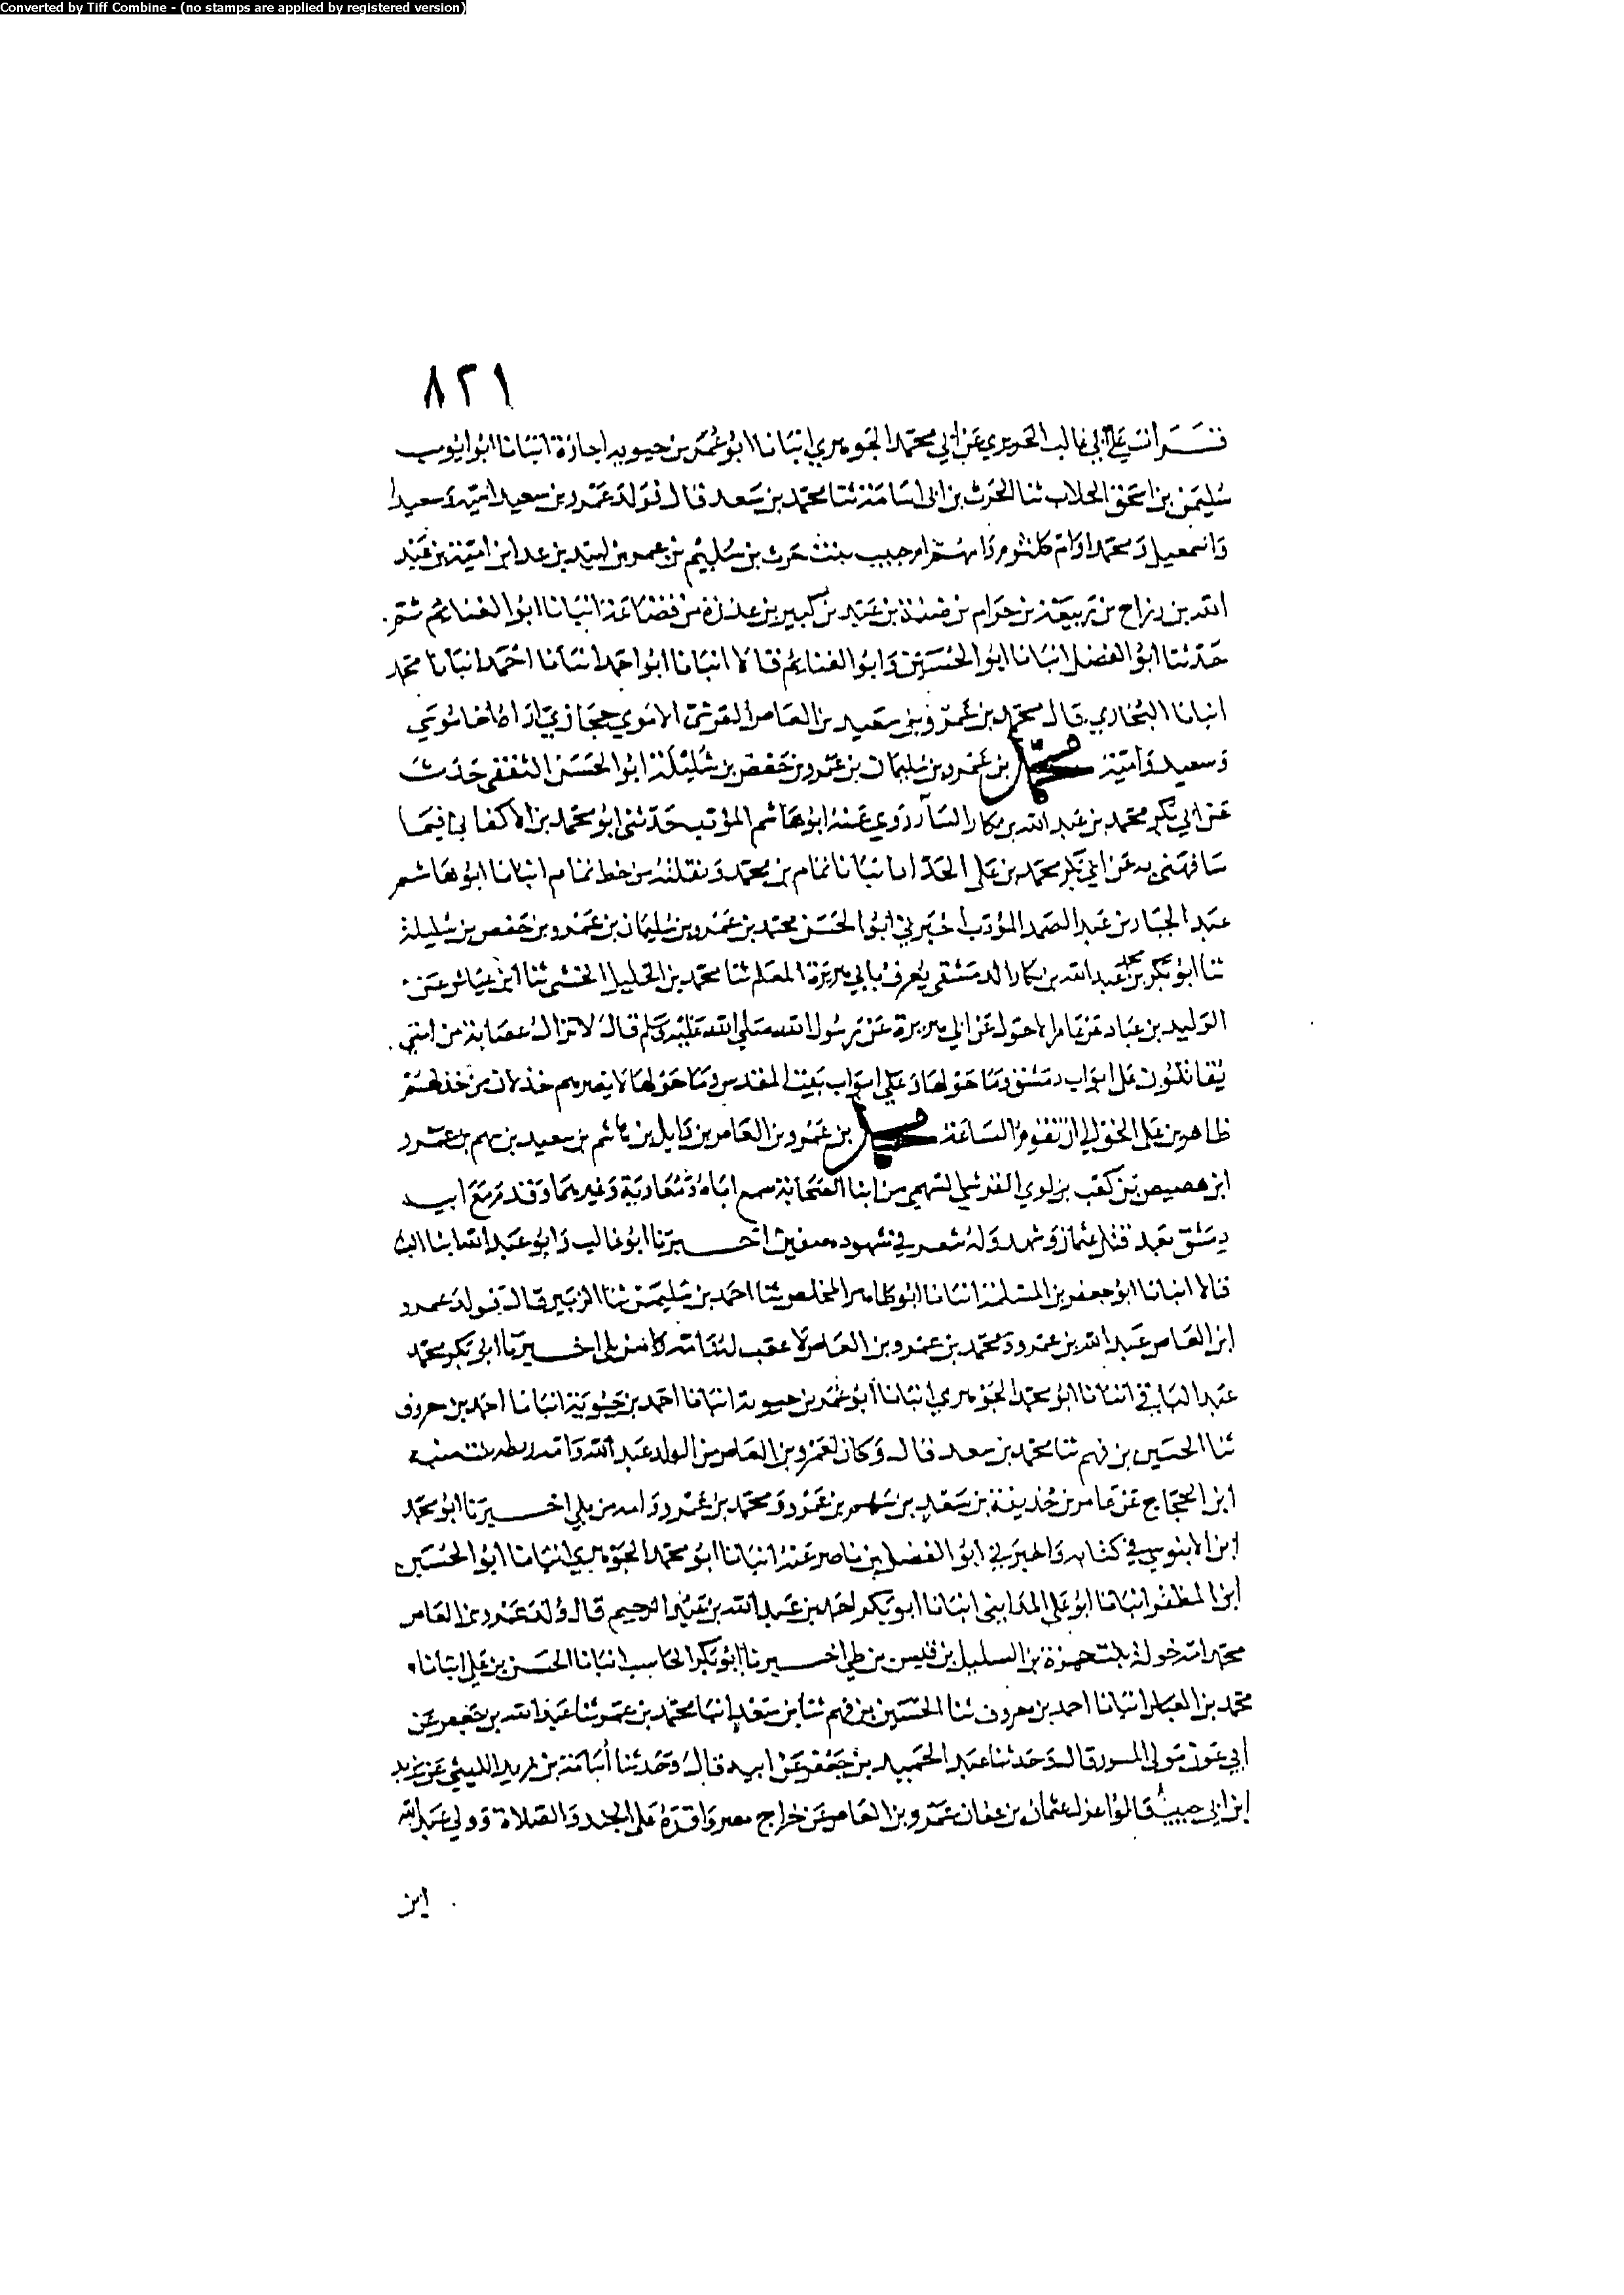 Converted by Tiff Combine - (no stamps are applied by registered version)
٨٢١
قرأت على أبي غالب الحريري عن أبي محمد الجوهري انبانا ابو عمر بن حيويه اجازة انبانا ابو ايوب
سليمن بن اسحق الحلاب ثنا الحرث بن ابي اسامة ثنا محمد بن سعد قال فولد عمرو بن سعيد امية وسعيدا
واسمعيل ومحمدا وام كلثوم وامهم ام حبيب بنت حرث بن سليم بن عمرو بن لبيد بن عدا ابن امية بن عبد
الله بن رزاح بن ربيعة بن حرام بن ضنة بن عبد بن كبير بن عذرة من قضاعة انبانا ابو الغنائم ثم
حدثنا ابو الفضل انبانا ابو الحسين وابو الغنائم قالا انبانا ابو احمد انبانا احمد انبانا محمد
انبانا البخاري قال محمد بن عمرو بن سعيد بن العاص القرشي الاموي حجازي اراه اخا موسى
وسعيد وامية محمد بن عمرو بن سليمان بن عمرو بن حفص بن شليلة ابو الحسن الثقفي حدث
عن ابي بكر محمد بن عبد الله بن بكار روي عنه ابو هاشم المؤدب حدثني ابو محمد بن الاكفاني فيما
شافهني به عن ابي بكر محمد بن علي الحداد انبانا تمام بن محمد ونقلته من خط تمام انبانا ابو هاشم
عبد الجبار بن عبد الصمد المؤدب اخبرني ابو الحسن محمد بن عمرو بن سليمان بن عمرو بن حفص بن شليلة
ثنا ابو بكر بن محمد عبد الله بن بكار الدمشقي يعرف بابي هريرة المعلم ثنا محمد بن الخليل الخشني ثنا ابن عياش عن
الوليد بن عباد عن عامر الاحول عن ابي هريرة عن رسول الله صلى الله عليه وسلم قال لا تزال عصابة من امتي
يقاتلون على ابواب دمشق وما حولها وعلى ابواب بيت المقدس وما حولها لا يضرهم خذلان من خذلهم
ظاهرين على الحق الي ان تقوم الساعة محمد بن عمرو بن العاص بن وايل بن هاشم بن سعيد بن سهم بن عمرو
ابن هصيص بن كعب بن لوي القرشي السهمي من ابنا الصحابة سمع اباه ومعاوية وغيرهما وقدم مع ابيه
دمشق بعد قتل عثمان وشهد وله شعر في شهوده صفين اخبرنا ابو غالب وابو عبد الله ابنا البنا
قالا انبانا ابو جعفر بن المسلمة انبانا ابو طاهر المخلص ثنا احمد بن سليمن ثنا الزبير قال فولد عمرو
ابن العاص عبد الله بن عمرو ومحمد بن عمرو بن العاص لا عقب له وامه من بلي اخبرنا ابي بكر محمد
عبد الباقي انبانا ابو محمد الجوهري انبانا ابو عمر بن حيوية انبانا احمد بن حيوية انبانا احمد بن معروف
ثنا الحسين بن فهم ثنا محمد بن سعد قال وكان لعمرو بن العاص من الولد عبد الله وامه ريطة بنت منبه
ابن الحجاج بن عامر بن حذيفة بن سعد بن سهم بن عمرو ومحمد بن عمرو وامه من بلي اخبرنا ابو محمد
ابن الابنوسي في كتابه واخبرني ابو الفضل بن ناصر عنه انبانا ابو محمد الجوهري انبانا ابو الحسين
ابن المظفر انبانا ابو علي المدايني انبانا ابو بكر احمد بن عبد الله بن عبد الرحيم قال ولد عمرو بن العاص
محمد امه خولة بنت حمزة بن السليل بن قيس من طي اخبرنا ابو بكر الحاسب انبانا الحسن بن علي انبانا
محمد بن العباس انبانا احمد بن معروف ثنا الحسين بن فهم ثنا بن سعد انبا محمد بن عمر ثنا عبد الله بن جعفر عن
ابي عون مولي المسور قال وحدثنا عبد الحميد بن جعفر عن ابيه قال وحدثنا اسامة بن زيد الليثي عن يزيد
ابن ابي حبيب قالوا عزل عثمان بن عفان عمرو بن العاص عن خراج مصر واقره على الجند والصلاة وولي عبد الله
ابن